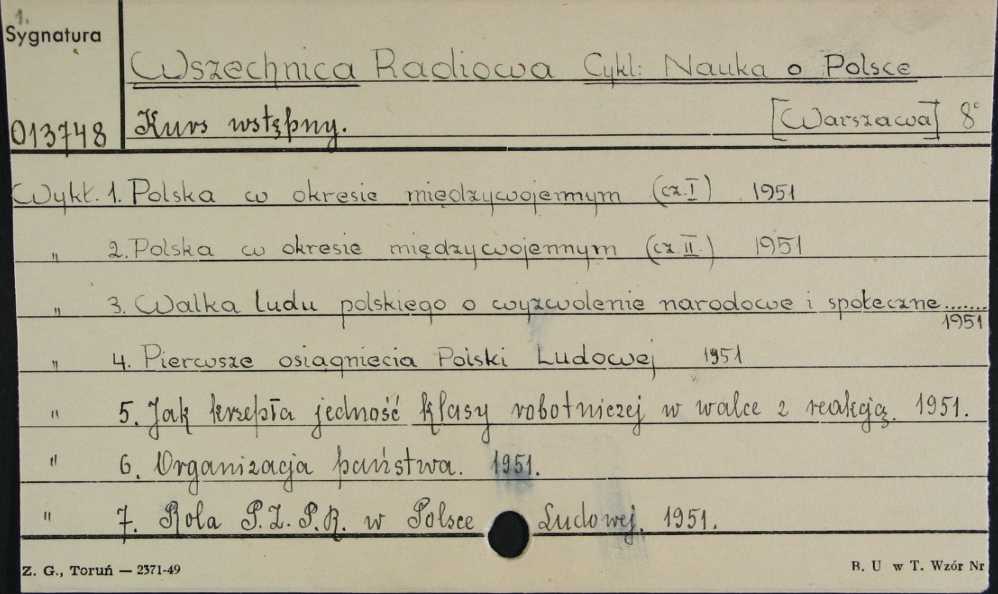 1.
Sygnatura
Wszechnica Radiowa Cykl: Nauka o Polsce
013748 Kurs wstępny. [Warszawa] 8°
Wykł. 1. Polska w okresie międzywojennym (cz. I) 1951
" 2. Polska w okresie międzywojennym (cz. II.) 1951
" 3. Walka ludu polskiego o wyzwolenie narodowe i społeczne.......
1951
" 4. Pierwsze osiągniecia Polski Ludowej 1951
" 5. Jak krzepła jedność klasy robotniczej w walce z reakcją. 1951.
" 6. Organizacja państwa. 1951.
" 7. Rola P.Z.P.R. w Polsce Ludowej. 1951.
Z. G., Toruń — 2371-49 B. U w T. Wzór Nr